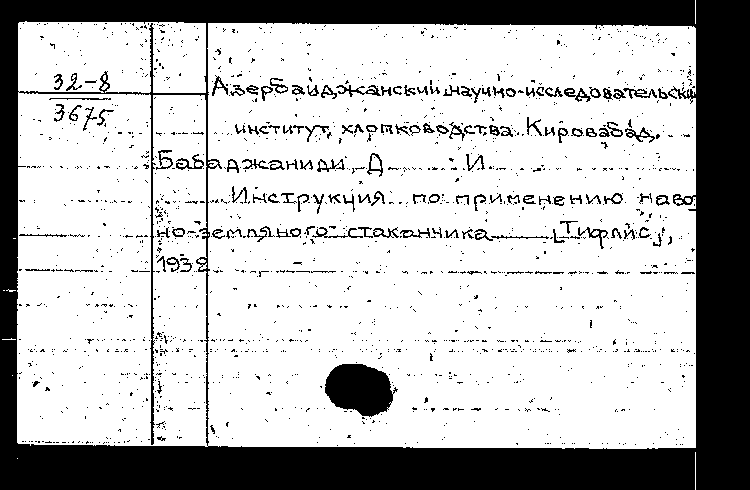 32-8
3675
Азербайджанский научно-исследовательски
институт хлопководства Кировабад.
Бабаджаниди, Д. И.
Инструкция по применению наво
но-земляного стаканчика [Тифлис],
1932